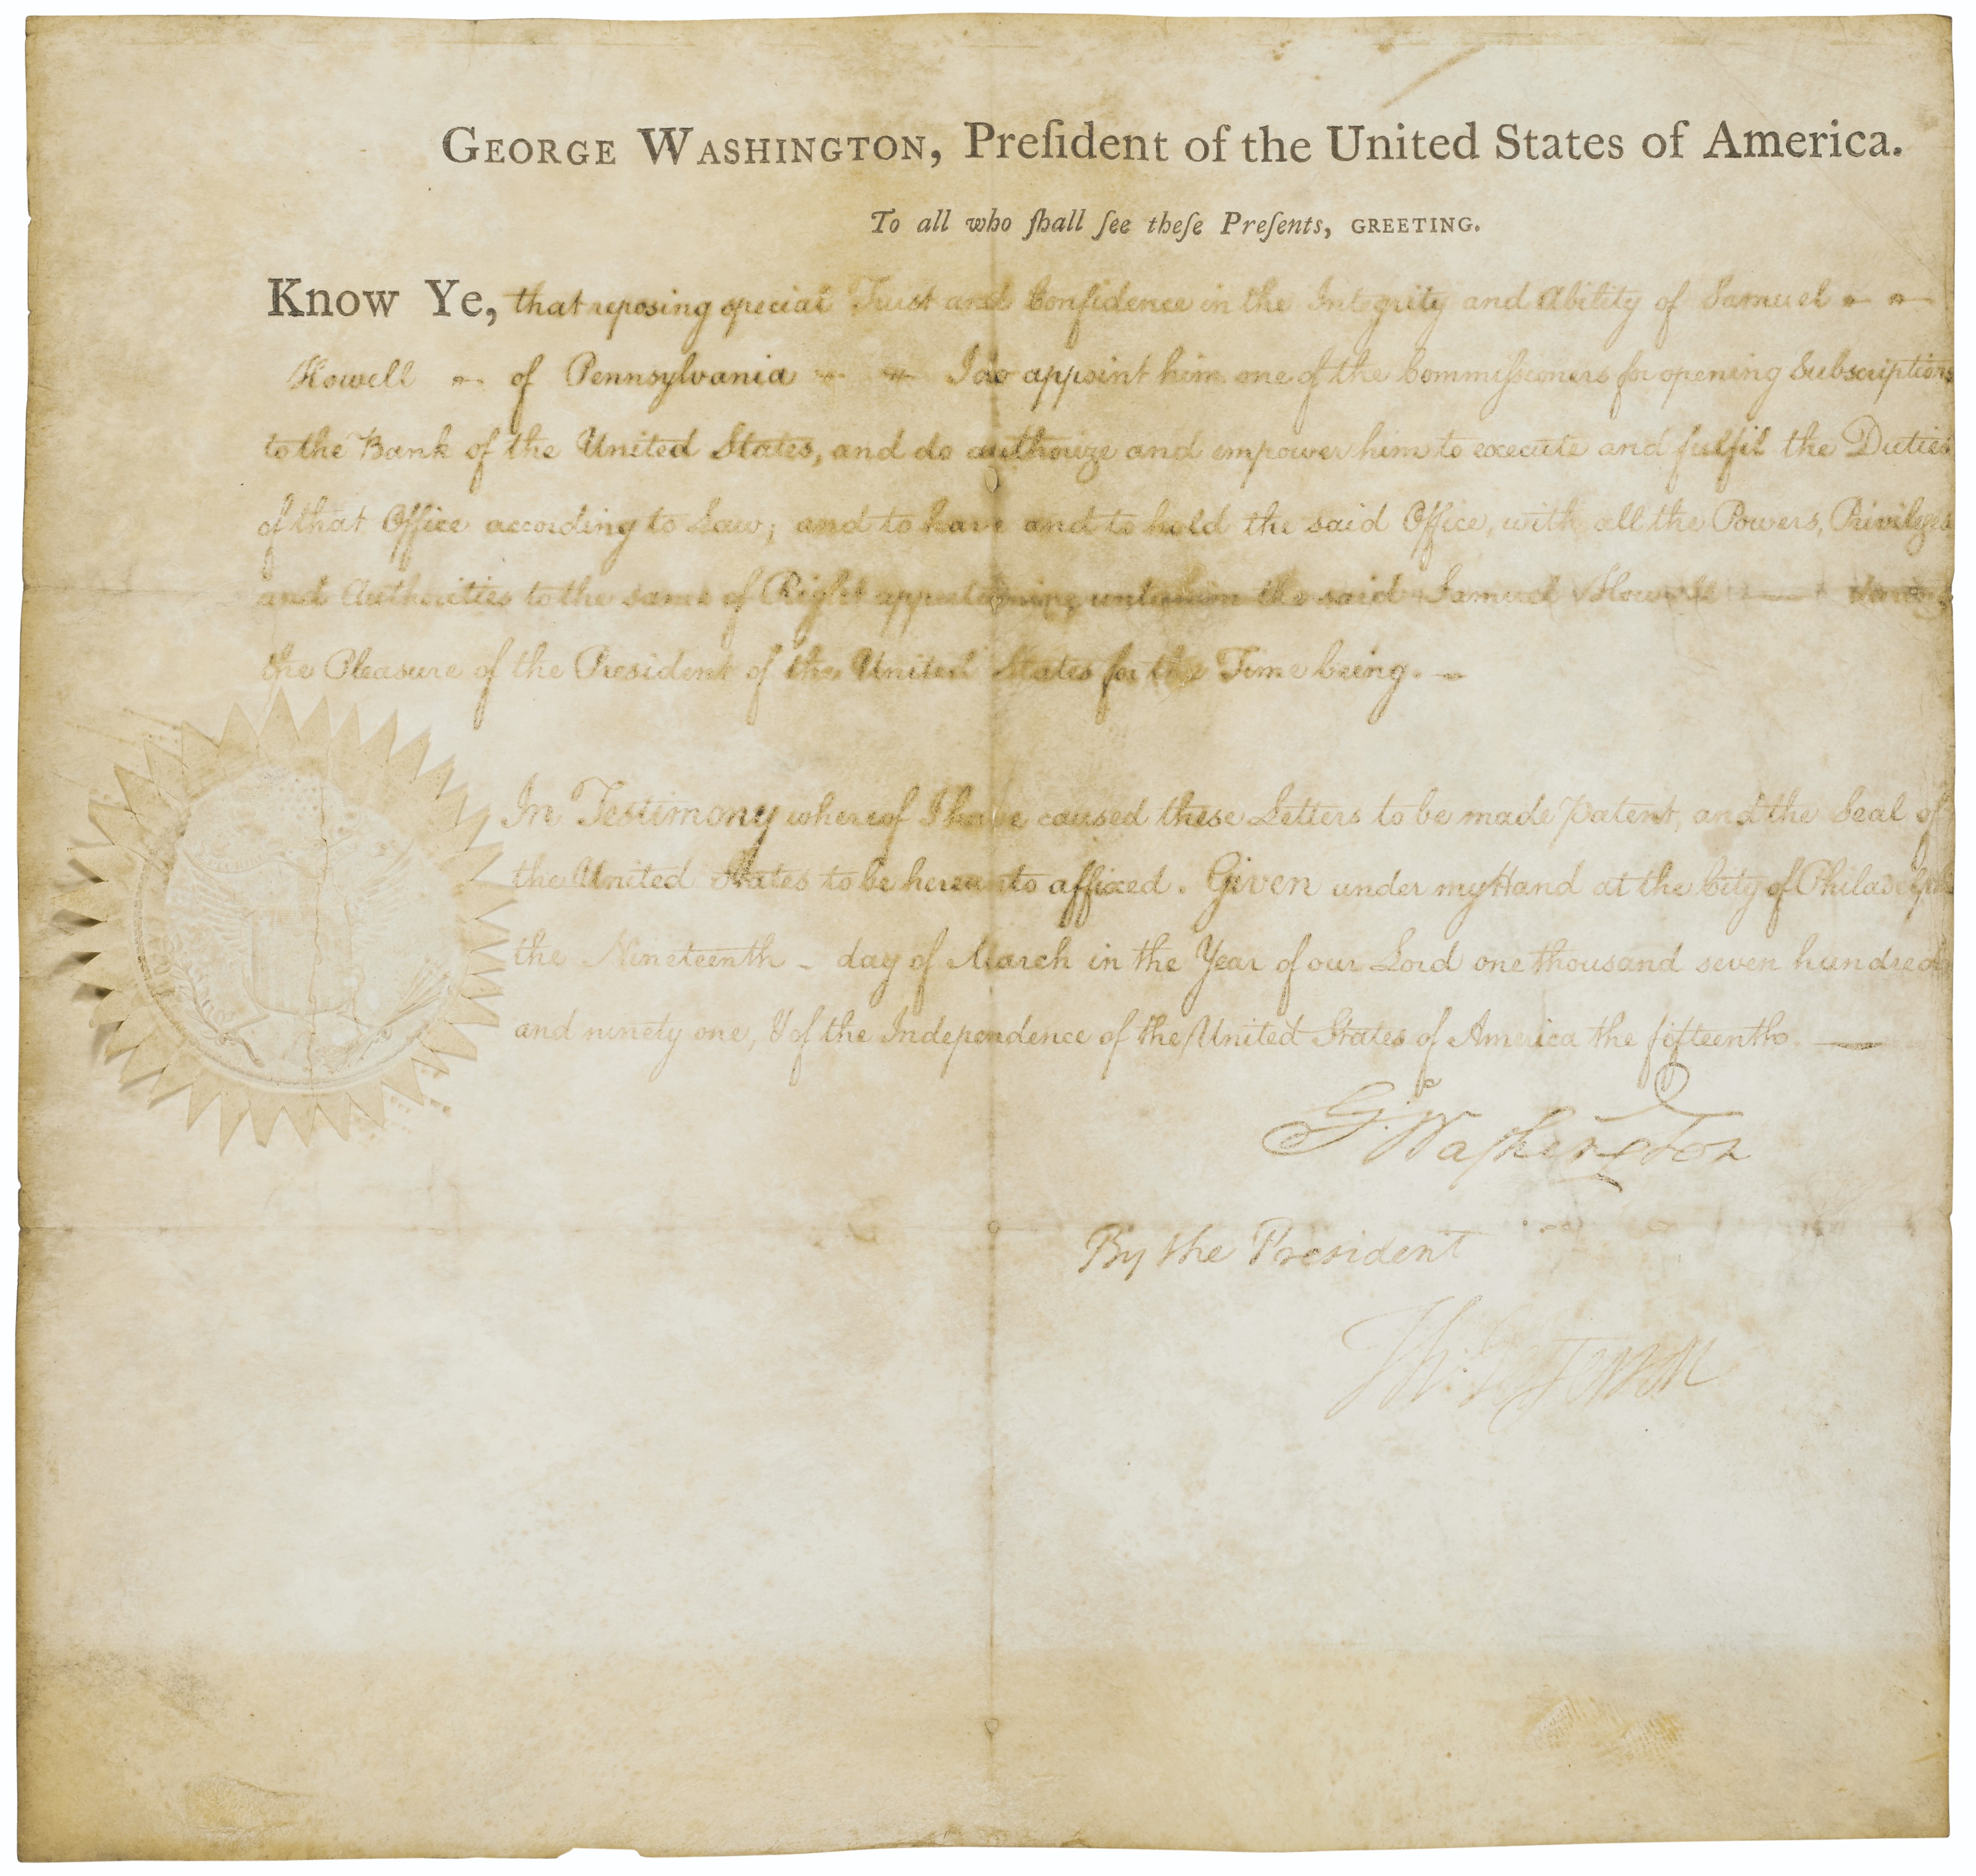 GEORGE WASHINGTON, Preſident of the United States of America.
To all who ſhall ſee theſe Preſents, GREETING.
Know Ye, that reposing special Trust and Confidence in the Integrity and Ability of Samuel
Howell of Pennsylvania I do appoint him one of the Commiſsioners for opening Subscriptions
to the Bank of the United States, and do authorize and empower him to execute and fulfil the Duties
of that Office according to Law; and to have and to hold the said Office, with all the Powers, Privileges
and Authorities to the same of Right appertaining unto him the said Samuel Howell during
the Pleasure of the President of the United States for the Time being.
In Testimony whereof I have caused these Letters to be made Patent, and the Seal of
the United States to be hereunto affixed. Given under my Hand at the City of Philadelphia
the Nineteenth day of March in the Year of our Lord one thousand seven hundred
and ninety one, & of the Independence of the United States of America the fifteenth.
Go: Waſhington
By the President
Th: Jefferson